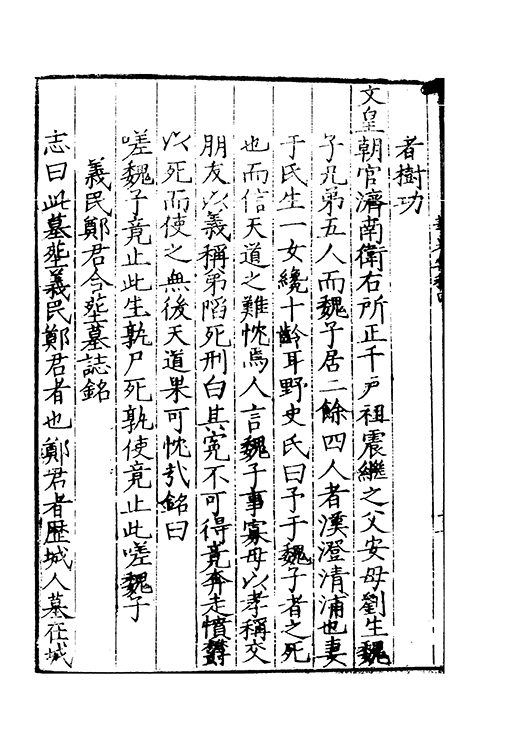 者樹功
文皇朝官濟南衛右所正千戶祖震繼之父安母劉生魏
子兄弟五人而魏子居二餘四人者漢澄清浦也妻
于氏生一女纔十齡耳野史氏曰予于魏子者之死
也而信天道之難忱焉人言魏子事寡母以孝稱交
朋友以義稱弟陷死刑白其冤不可得竟奔走憤鬱
以死而使之無後天道果可忱哉銘曰
嗟魏子竟止此生孰尸死孰使竟止此嗟魏子
義民鄭君合塟墓誌銘
志曰此墓塟義民鄭君者也鄭君者歷城人墓在城